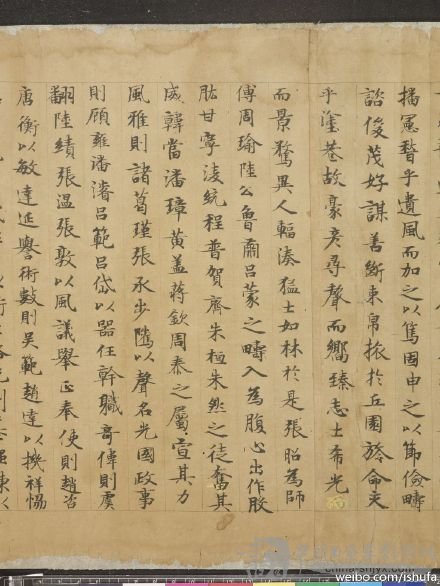 播憲稽乎遺風而加之以篤固申之以節儉疇
諮俊茂好謀善斷束帛旅於丘園旌命交
乎塗巷故豪彦尋聲而嚮臻志士希光
而景騖異人輻湊猛士如林於是張昭為師
傅周瑜陸公魯肅吕蒙之疇入為腹心出作股
肱甘寧凌統程普賀齊朱桓朱然之徒奮其
威韓當潘璋黄蓋蔣欽周泰之屬宣其力
風雅則諸葛瑾張承步騭以聲名光國政事
則顧雍潘濬吕範吕岱以器任幹職奇偉則虞
翻陸績張温張敦以風議舉正奉使則趙咨
唐衡以敏達延譽術數則吴範趙達以禨祥惕
weibo.com/ishufa